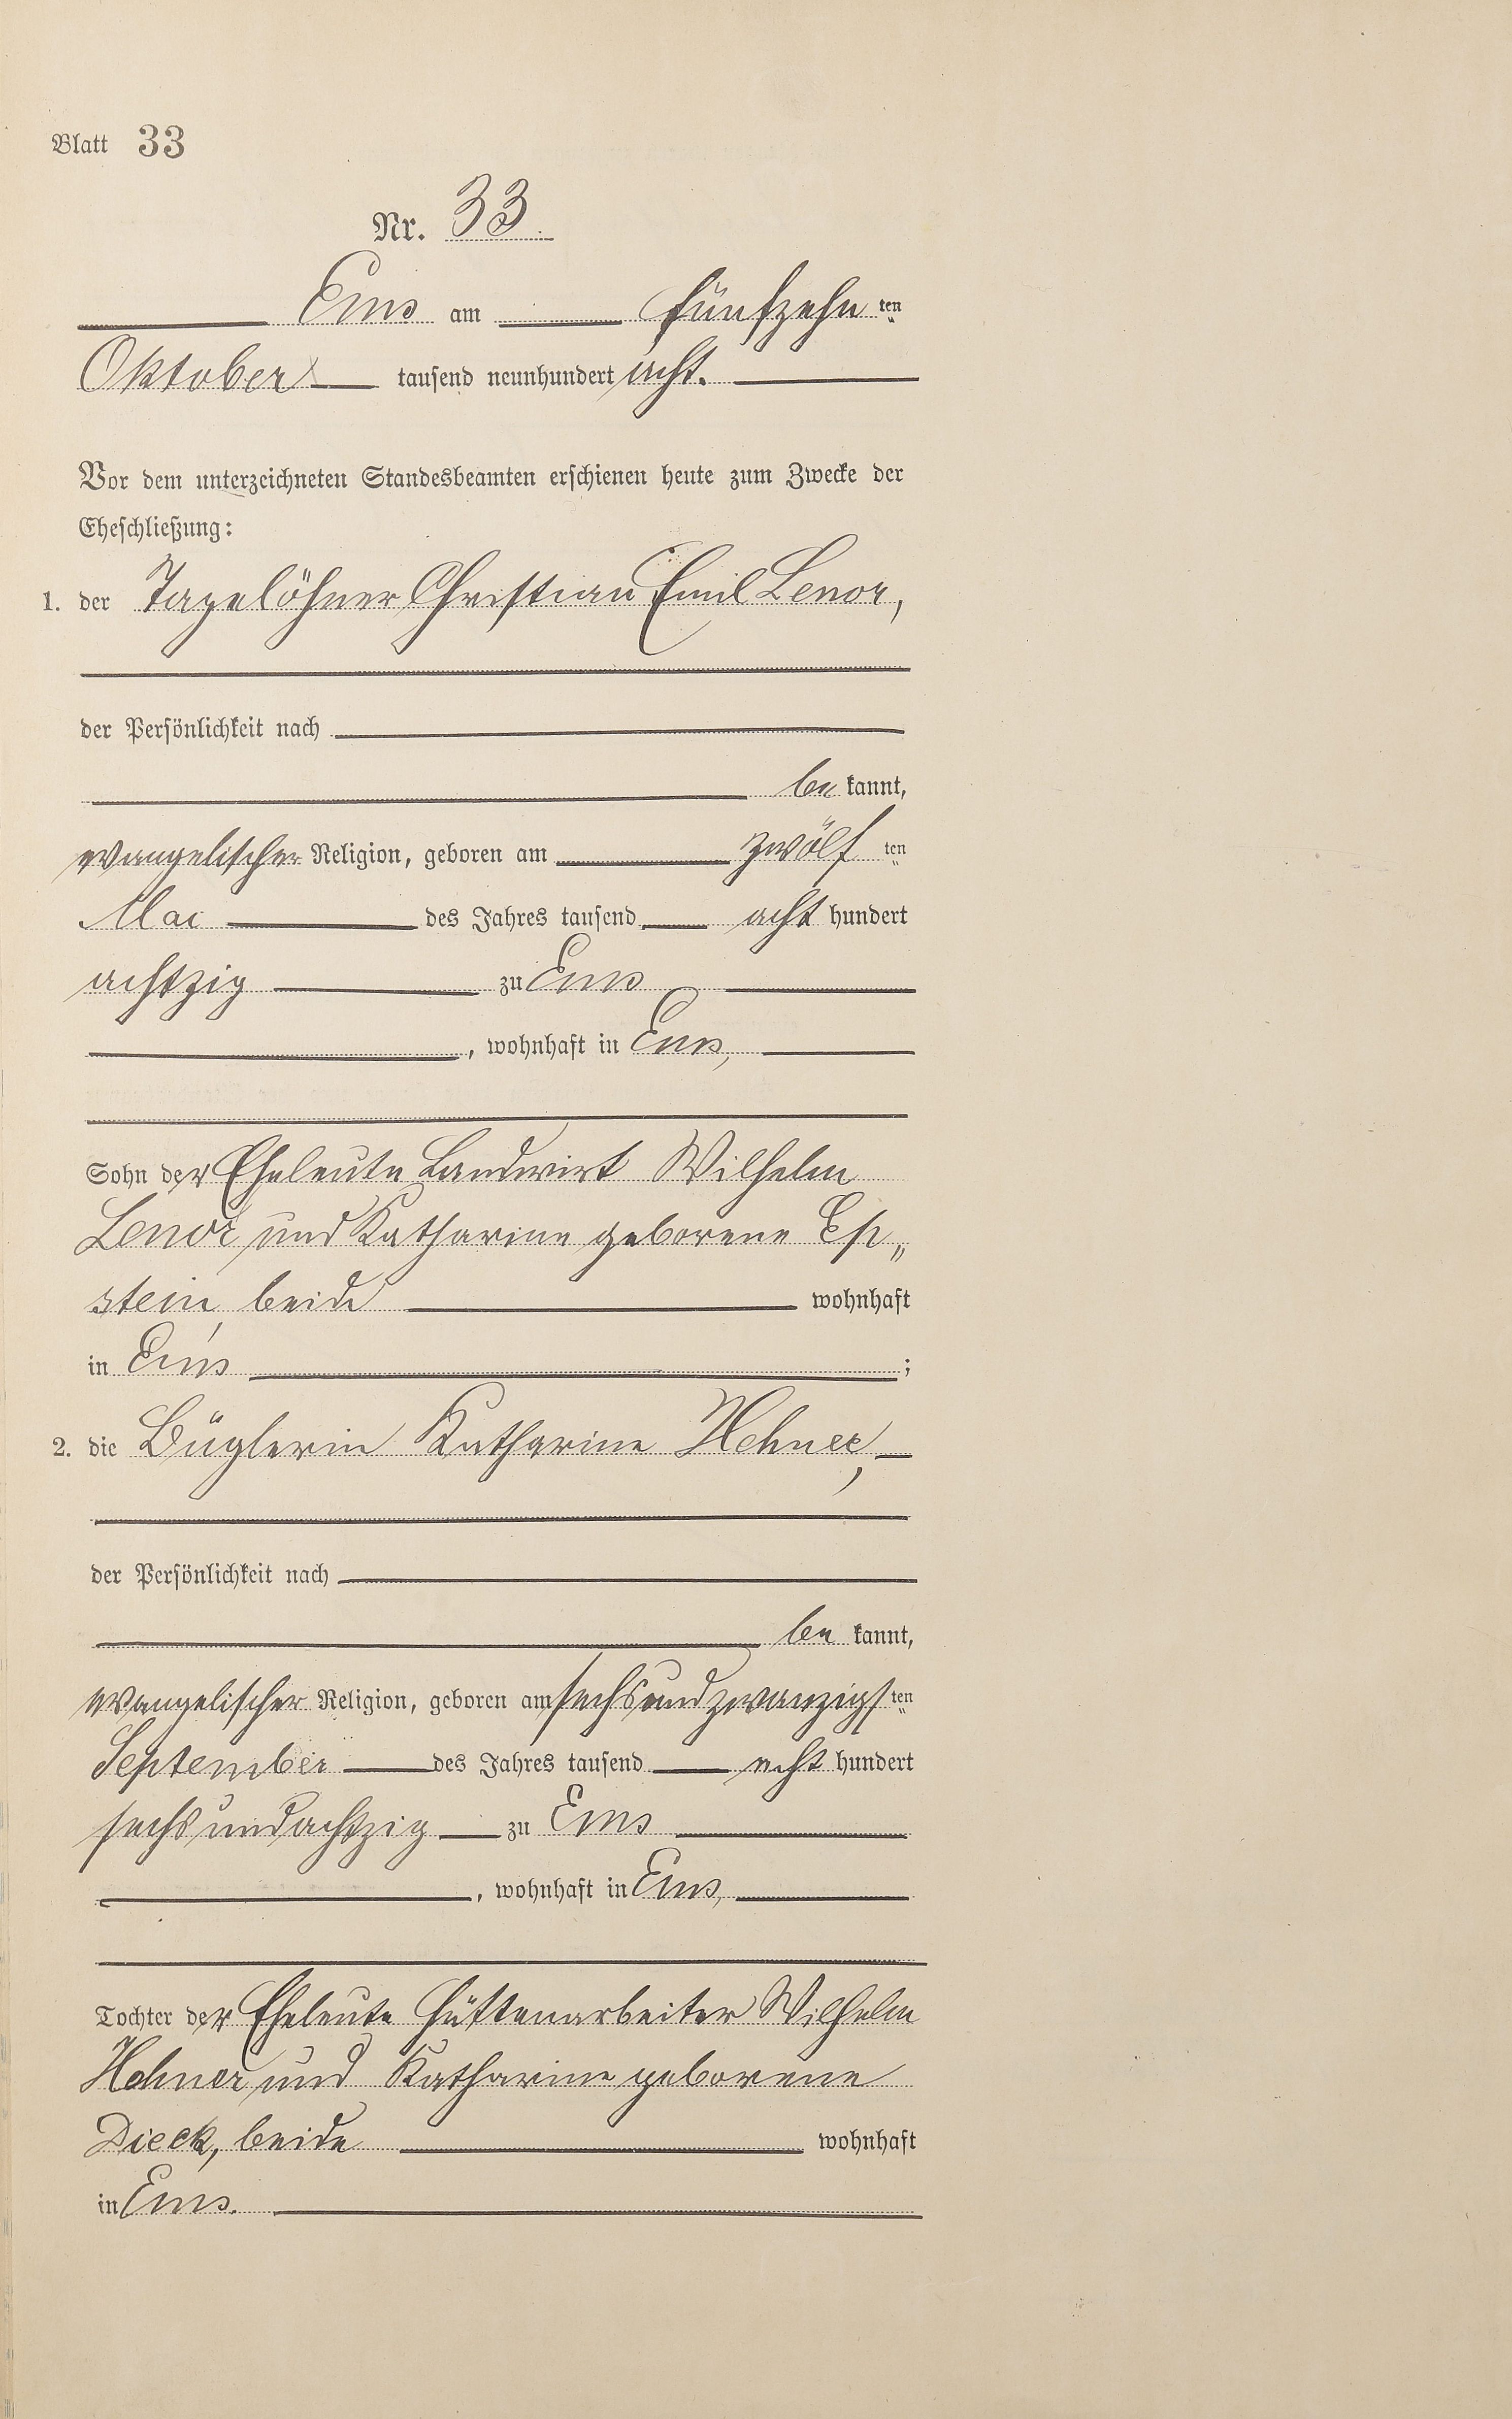 Blatt 33
Nr. 33.
Ems am fünfzehn ten
Oktober tausend neunhundert acht.
Vor dem unterzeichneten Standesbeamten erschienen heute zum Zwecke der
Eheschließung:
1. der Tagelöhner Christian Emil Lenor,
der Persönlichkeit nach
be kannt,
evangelischer Religion, geboren am zwölf ten
Mai des Jahres tausend acht hundert
achtzig zu Ems
, wohnhaft in Ems,
Sohn der Eheleute Landwirt Wilhelm
Lenor und Katharine geborene Ep„
stein, beide wohnhaft
in Ems ;
2. die Büglerin Katharine Hehner,
der Persönlichkeit nach
be kannt,
evangelischer Religion, geboren am sechsundzwanzigs ten
September des Jahres tausend acht hundert
sechsundachtzig zu Ems
, wohnhaft in Ems,
Tochter der Eheleute Hüttenarbeiter Wilhelm
Hehner und Katharine geborene
Dieck, beide wohnhaft
in Ems.